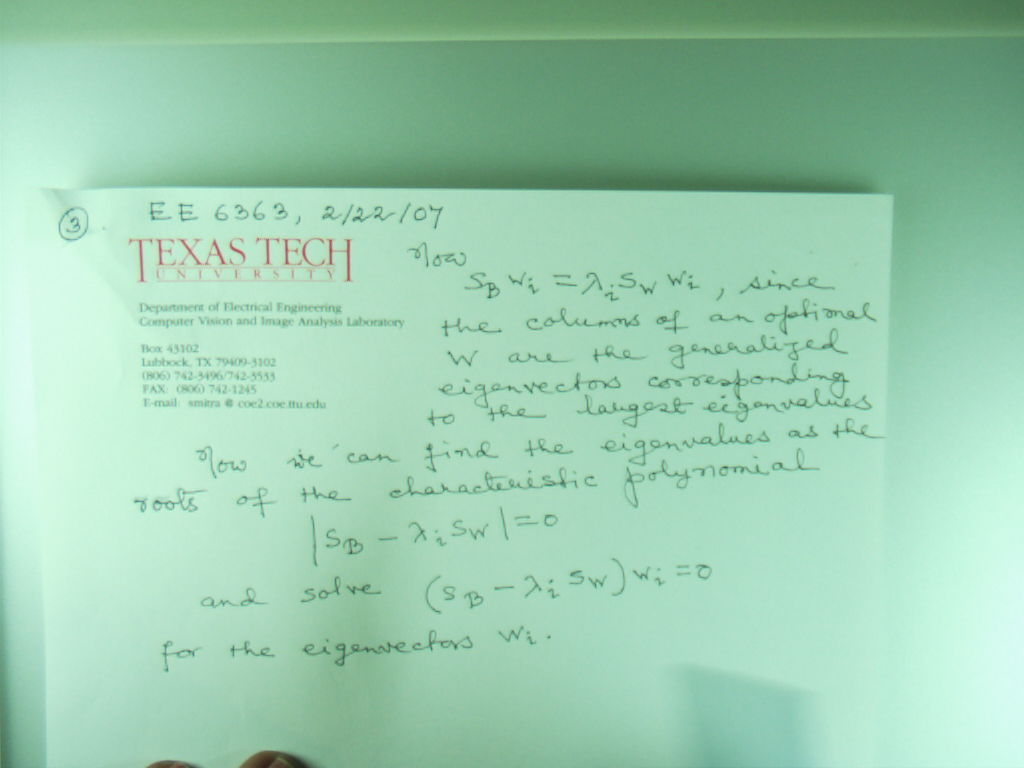 3
EE 6363, 2/22/07
TEXAS TECH
UNIVERSITY
Department of Electrical Engineering
Computer Vision and Image Analysis Laboratory
Box 43102
Lubbock, TX 79409-3102
(806) 742-3496/742-3533
FAX: (806) 742-1245
E-mail: smitra @ coe2.coe.ttu.edu
Now
S_B w_i = λ_i S_W w_i, since
the columns of an optimal
W are the generalized
eigenvectors corresponding
to the largest eigenvalues
Now we can find the eigenvalues as the
roots of the characteristic polynomial
|S_B - λ_i S_W| = 0
and solve (S_B - λ_i S_W) w_i = 0
for the eigenvectors w_i.